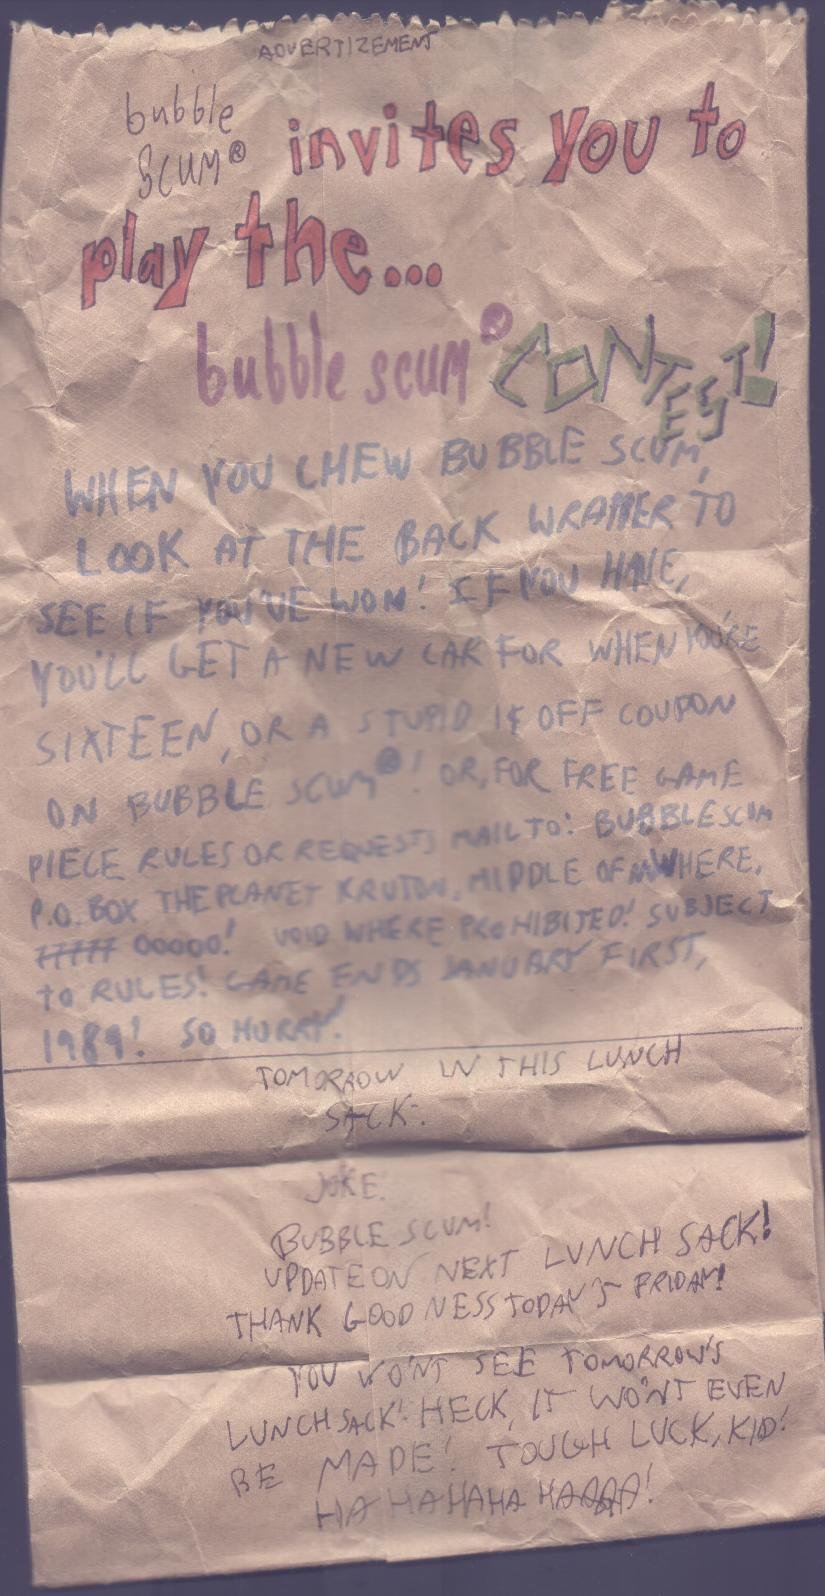 ADVERTIZEMENT
bubble
SCUM® invites you to
play the...
bubble scum® CONTEST!
WHEN YOU CHEW BUBBLE SCUM,
LOOK AT THE BACK WRAPPER TO
SEE IF YOU'VE WON! IF YOU HAVE,
YOU'LL GET A NEW CAR FOR WHEN YOU'RE
SIXTEEN, OR A STUPID 1¢ OFF COUPON
ON BUBBLE SCUM®! OR, FOR FREE GAME
PIECE RULES OR REQUESTS MAIL TO: BUBBLE SCUM
P.O. BOX THE PLANET KRUTON, MIDDLE OF NOWHERE,
77777 00000! VOID WHERE PROHIBITED! SUBJECT
TO RULES! GAME ENDS JANUARY FIRST,
1989! SO HURRY!
TOMORROW IN THIS LUNCH
SACK:
JOKE:
BUBBLE SCUM!
UPDATE ON NEXT LUNCH SACK!
THANK GOODNESS TODAY'S FRIDAY!
YOU WO'NT SEE TOMORROW'S
LUNCH SACK! HECK, IT WO'NT EVEN
BE MADE! TOUGH LUCK, KID!
HA HAHAHA HAAAA!